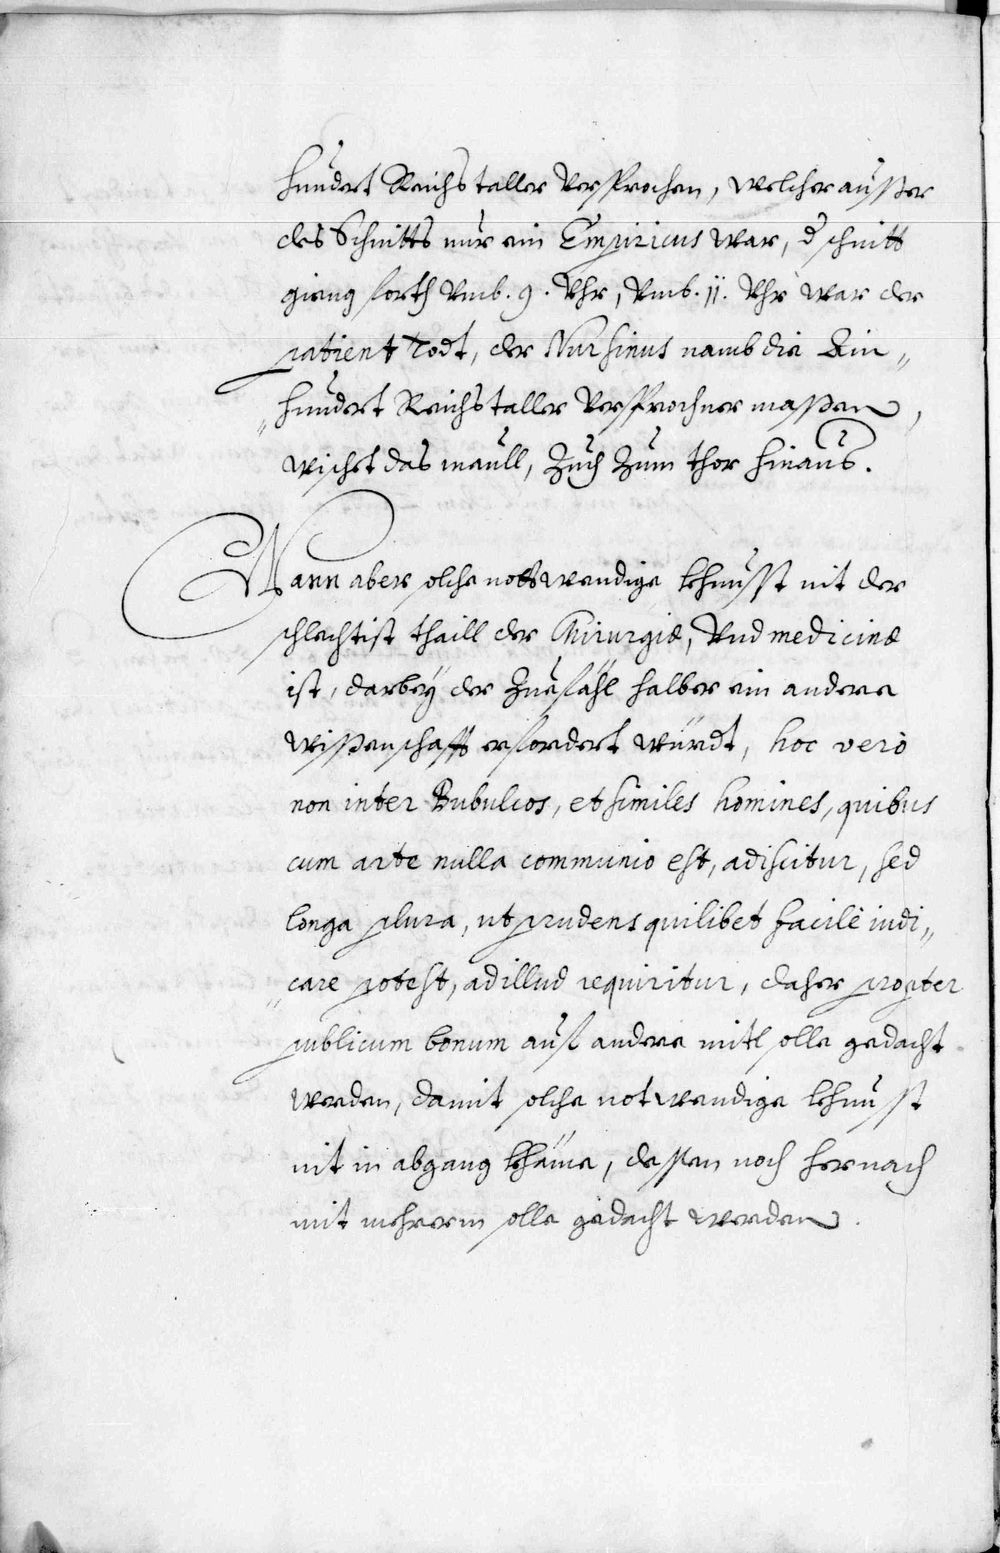 hundert Reichstaller versprochen, welcher ausser
des Schnitts nur ein Empiricus war, d schnitt
gieng forth vmb. 9. Vhr, vmb. 11. Vhr war der
patient Todt, der Nursinus namb die Ein„
„hundert Reichstaller versprochner massen,
wischt das maull, Zuch Zum thor hinaus.
Wann aber solche nottwendige khunsst nit der
schlechtist thaill der Chirurgiæ, Vnd medicinæ
ist, darbeÿ der Zuefähl halber ein andere
wissenschafft erfordert würdt, hoc verò
non inter Bubulcos, et similes homines, quibus
cum arte nulla communio est, adiscitur, sed
longa plura, ut prudens quilibet facilè iudi„
„care potest, ad illud requiritur, daher propter
publicum bonum auf andere mitl solle gedacht
werden, damit solche notwendige khunsst
nit in abgang khäme, dessen noch hernach
mit mehrerm solle gedacht werden.